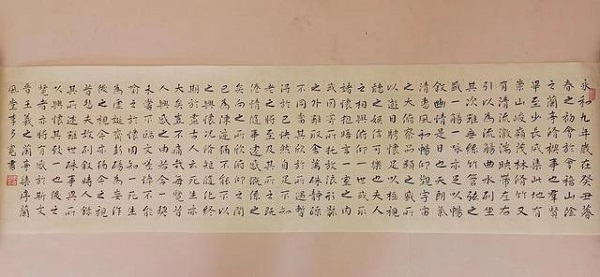 永和九年歲在癸丑暮
春之初會於會稽山陰
之蘭亭脩稧事也羣賢
畢至少長咸集此地有
崇山峻嶺茂林脩竹又
有清流激湍映帶左右
引以為流觴曲水列坐
其次雖無絲竹管弦之
盛一觴一詠亦足以暢
叙幽情是日也天朗氣
清惠風和暢仰觀宇宙
之大俯察品類之盛所
以遊目騁懷足以極視
聽之娛信可樂也夫人
之相與俯仰一世或取
諸懷抱晤言一室之內
或因寄所託放浪形骸
之外雖取舍萬殊靜躁
不同當其欣於所遇暫
得於己快然自足不知
老之將至及其所之既
惓情隨事遷感慨係之
矣向之所欣俯仰之間
已為陳迹猶不能不以
之興懷況脩短隨化終
期於盡古人云死生亦
大矣豈不痛哉每覽昔
人興感之由若合一契
未嘗不臨文嗟悼不能
喻之於懷固知一死生
為虛誕齊彭殤為妄作
後之視今亦猶今之視
昔悲夫故列叙時人錄
其所述雖世殊事異所
以興懷其致一也後之
覽者亦將有感於斯文
晉王羲之蘭亭集序蘭
風堂書